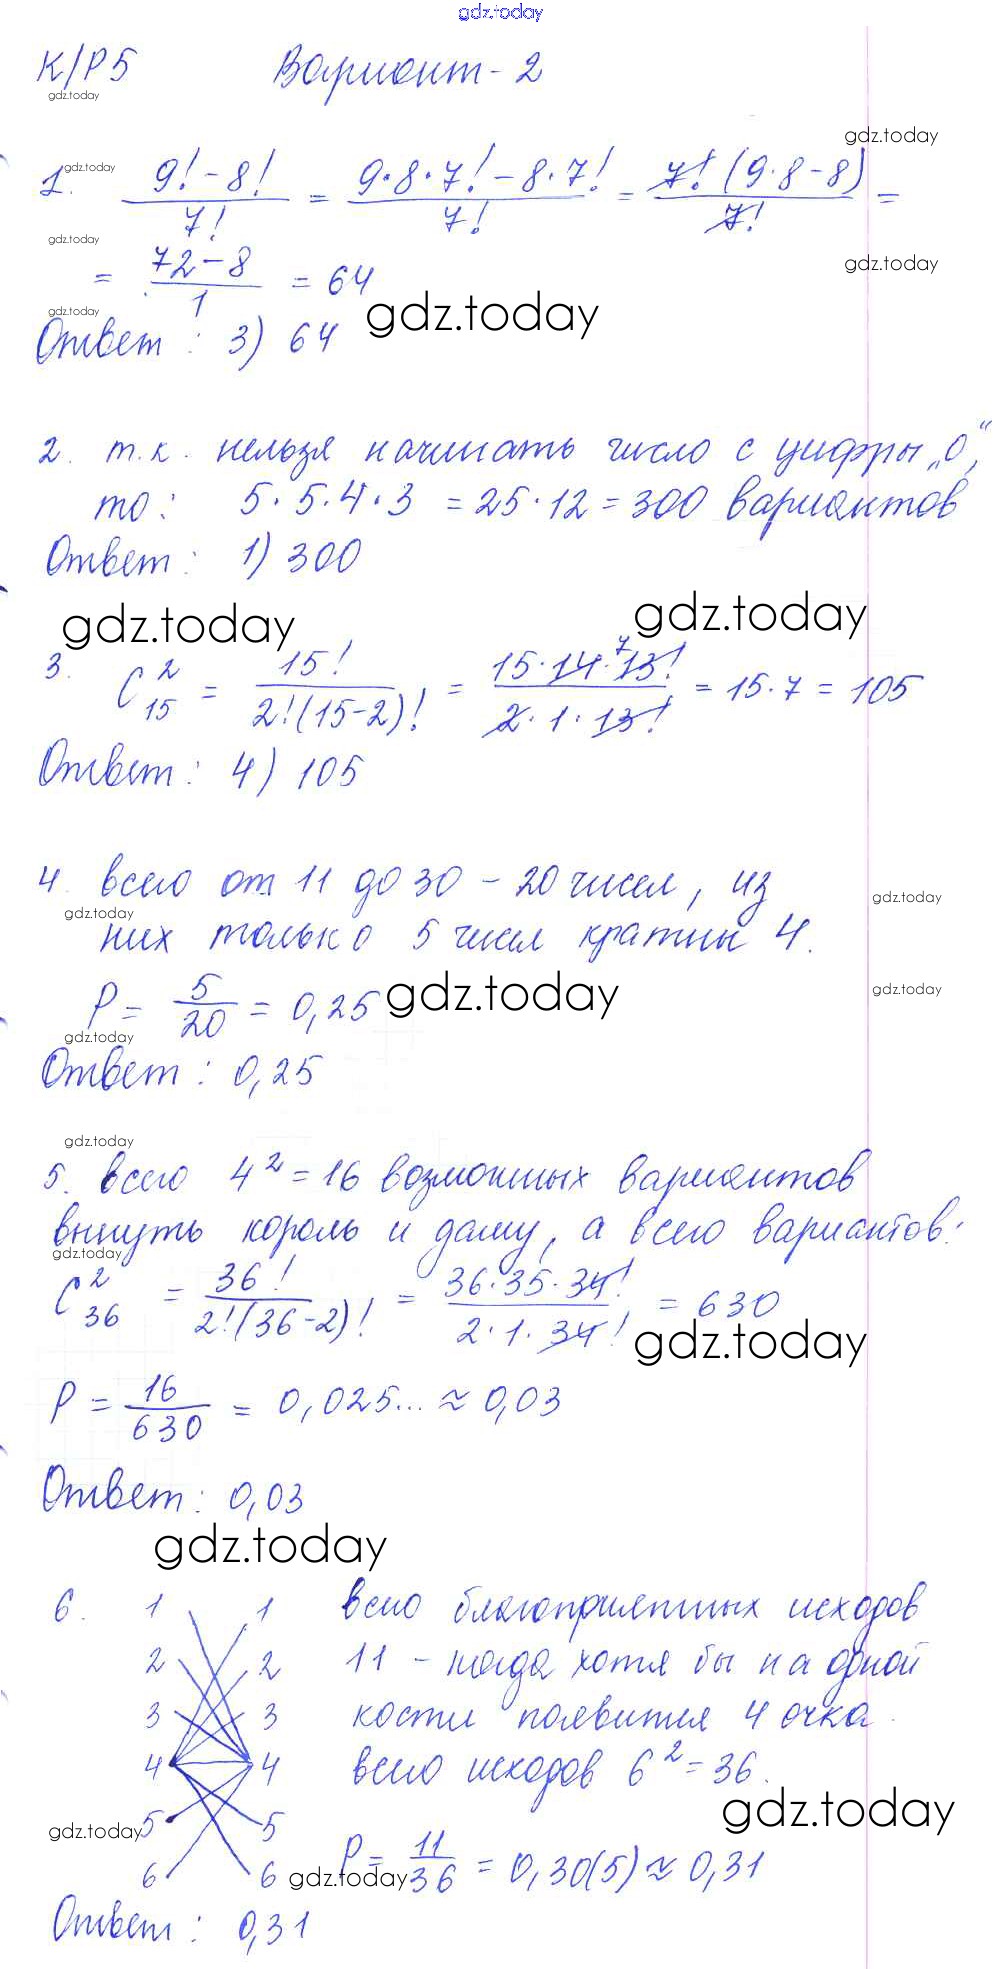 gdz.today
К/Р 5 Вариант - 2
gdz.today
gdz.today
1. gdz.today (9! - 8!)/7! = (9·8·7! - 8·7!)/7! = 7!(9·8-8)/7! =
gdz.today
= (72-8)/1 = 64
gdz.today
gdz.today
gdz.today
Ответ: 3) 64
2. т.к. нельзя начинать число с цифры „0“,
то: 5·5·4·3 = 25·12 = 300 вариантов
Ответ: 1) 300
gdz.today gdz.today
3. C²₁₅ = 15!/(2!(15-2)!) = (15·14·13!)/(2·1·13!) = 15·7 = 105
7
Ответ: 4) 105
4. всего от 11 до 30 - 20 чисел, из
gdz.today gdz.today
них только 5 чисел кратны 4.
P = 5/20 = 0,25 gdz.today
gdz.today
gdz.today
Ответ: 0,25
gdz.today
5. всего 4² = 16 возможных вариантов
вынуть король и даму, а всего вариантов:
gdz.today
C²₃₆ = 36!/(2!(36-2)!) = (36·35·34!)/(2·1·34!) = 630
gdz.today
P = 16/630 = 0,025... ≈ 0,03
Ответ: 0,03
gdz.today
6. 1 1 всего благоприятных исходов
2 2 11 - когда хотя бы на одной
3 3 кости появится 4 очка.
4 4 всего исходов 6² = 36.
gdz.today
gdz.today 5 5
6 6 gdz.today P = 11/36 = 0,30(5) ≈ 0,31
Ответ: 0,31